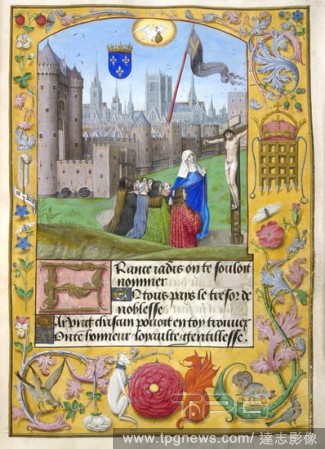 France iadis on te souloit
nommer
En tous pays le tresor de
noblesse
Car vng chascun pouoit en toy trouuer
Honte honneur loyaulte gentillesse.
www.tpgnews.com/達志影像